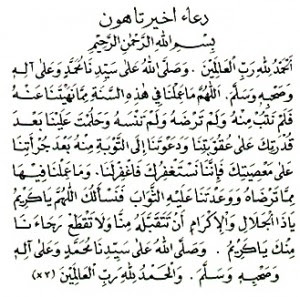 دعاء اخير تاهون
بِسْمِ اللهِ الرَّحْمٰنِ الرَّحِيْمِ
اَلْحَمْدُ لِلّٰهِ رَبِّ الْعَالَمِيْنَ . وَصَلَّى اللهُ عَلَى سَيِّدِنَا مُحَمَّدٍ وَعَلَى آلِهِ
وَصَحْبِهِ وَسَلَّمَ . اَللّٰهُمَّ مَا عَمِلْنَا فِي هٰذِهِ السَّنَةِ مِمَّا نَهَيْتَنَا عَنْهُ
فَلَمْ نَتُبْ مِنْهُ وَلَمْ تَرْضَهُ وَلَمْ تَنْسَهُ وَحَلُمْتَ عَلَيْنَا بَعْدَ
قُدْرَتِكَ عَلَى عُقُوْبَتِنَا وَدَعَوْتَنَا إِلَى التَّوْبَةِ مِنْهُ بَعْدَ جُرْأَتِنَا
عَلَى مَعْصِيَتِكَ فَإِنَّنَا نَسْتَغْفِرُكَ فَاغْفِرْلَنَا . وَمَا عَمِلْنَا فِيْهَا
مِمَّا تَرْضَاهُ وَوَعَدْتَنَا عَلَيْهِ الثَّوَابَ فَنَسْأَلُكَ اللّٰهُمَّ يَاكَرِيْمُ
يَاذَا الْجَلَالِ وَالْإِكْرَامِ أَنْ تَتَقَبَّلَهُ مِنَّا وَلَا تَقْطَعْ رَجَاءَنَا
مِنْكَ يَاكَرِيْمُ . وَصَلَّى اللهُ عَلَى سَيِّدِنَا مُحَمَّدٍ وَعَلَى آلِهِ
وَصَحْبِهِ وَسَلَّمَ . وَالْحَمْدُ لِلّٰهِ رَبِّ الْعَالَمِيْنَ (×٣)